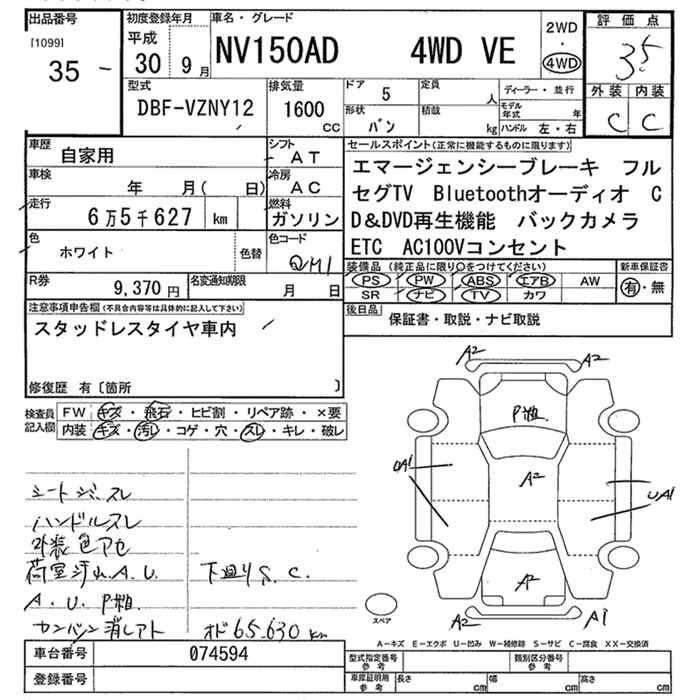 出品番号
[1099]
35 -
初度登録年月
平成
30 9月
車名・グレード
NV150AD 4WD VE
2WD
・
4WD
評価点
3.5
外装 内装
C C
型式
DBF-VZNY12
排気量
1600
cc
ドア 5
定員 人
形状 バン
積載 kg
ディーラー・並行
モデル年式 年
ハンドル 左・右
車歴
自家用
シフト
AT
車検
年 月( 日)
冷房
AC
走行
6万5千627 km
燃料
ガソリン
色
ホワイト
色替
色コード
QM1
R券
9,370円
名変通知期限
月 日
セールスポイント(正常に機能するものに限ります)
エマージェンシーブレーキ フル
セグTV Bluetoothオーディオ C
D&DVD再生機能 バックカメラ
ETC AC100Vコンセント
装備品(純正品に限り○をつけてください)
PS PW ABS エアB AW
SR ナビ TV カワ
新車保証書
有・無
後日品
保証書・取説・ナビ取説
注意事項申告欄(不具合内容等は具体的に記入して下さい)
スタッドレスタイヤ車内
修復歴 有〔箇所 〕
検査員
記入欄
FW キズ・飛石・ヒビ割・リペア跡・×要
内装 キズ・汚レ・コゲ・穴・スレ・キレ・破レ
シートジミスレ
ハンドルスレ
外装色アセ
荷室汚れ A.U.
下廻りS.C.
A.U.P粗.
カンバン消しアト
オド65.630km
A2
A2
P粗.
UA1
A2
UA1
A2
A2
A1
スペア
A-キズ E-エクボ U-凹み W-補修跡 S-サビ C-腐食 XX-交換済
車台番号
074594
登録番号
型式指定番号
参考
類別区分番号
参考
車庫証明用
参考
長さ cm
幅 cm
高さ cm